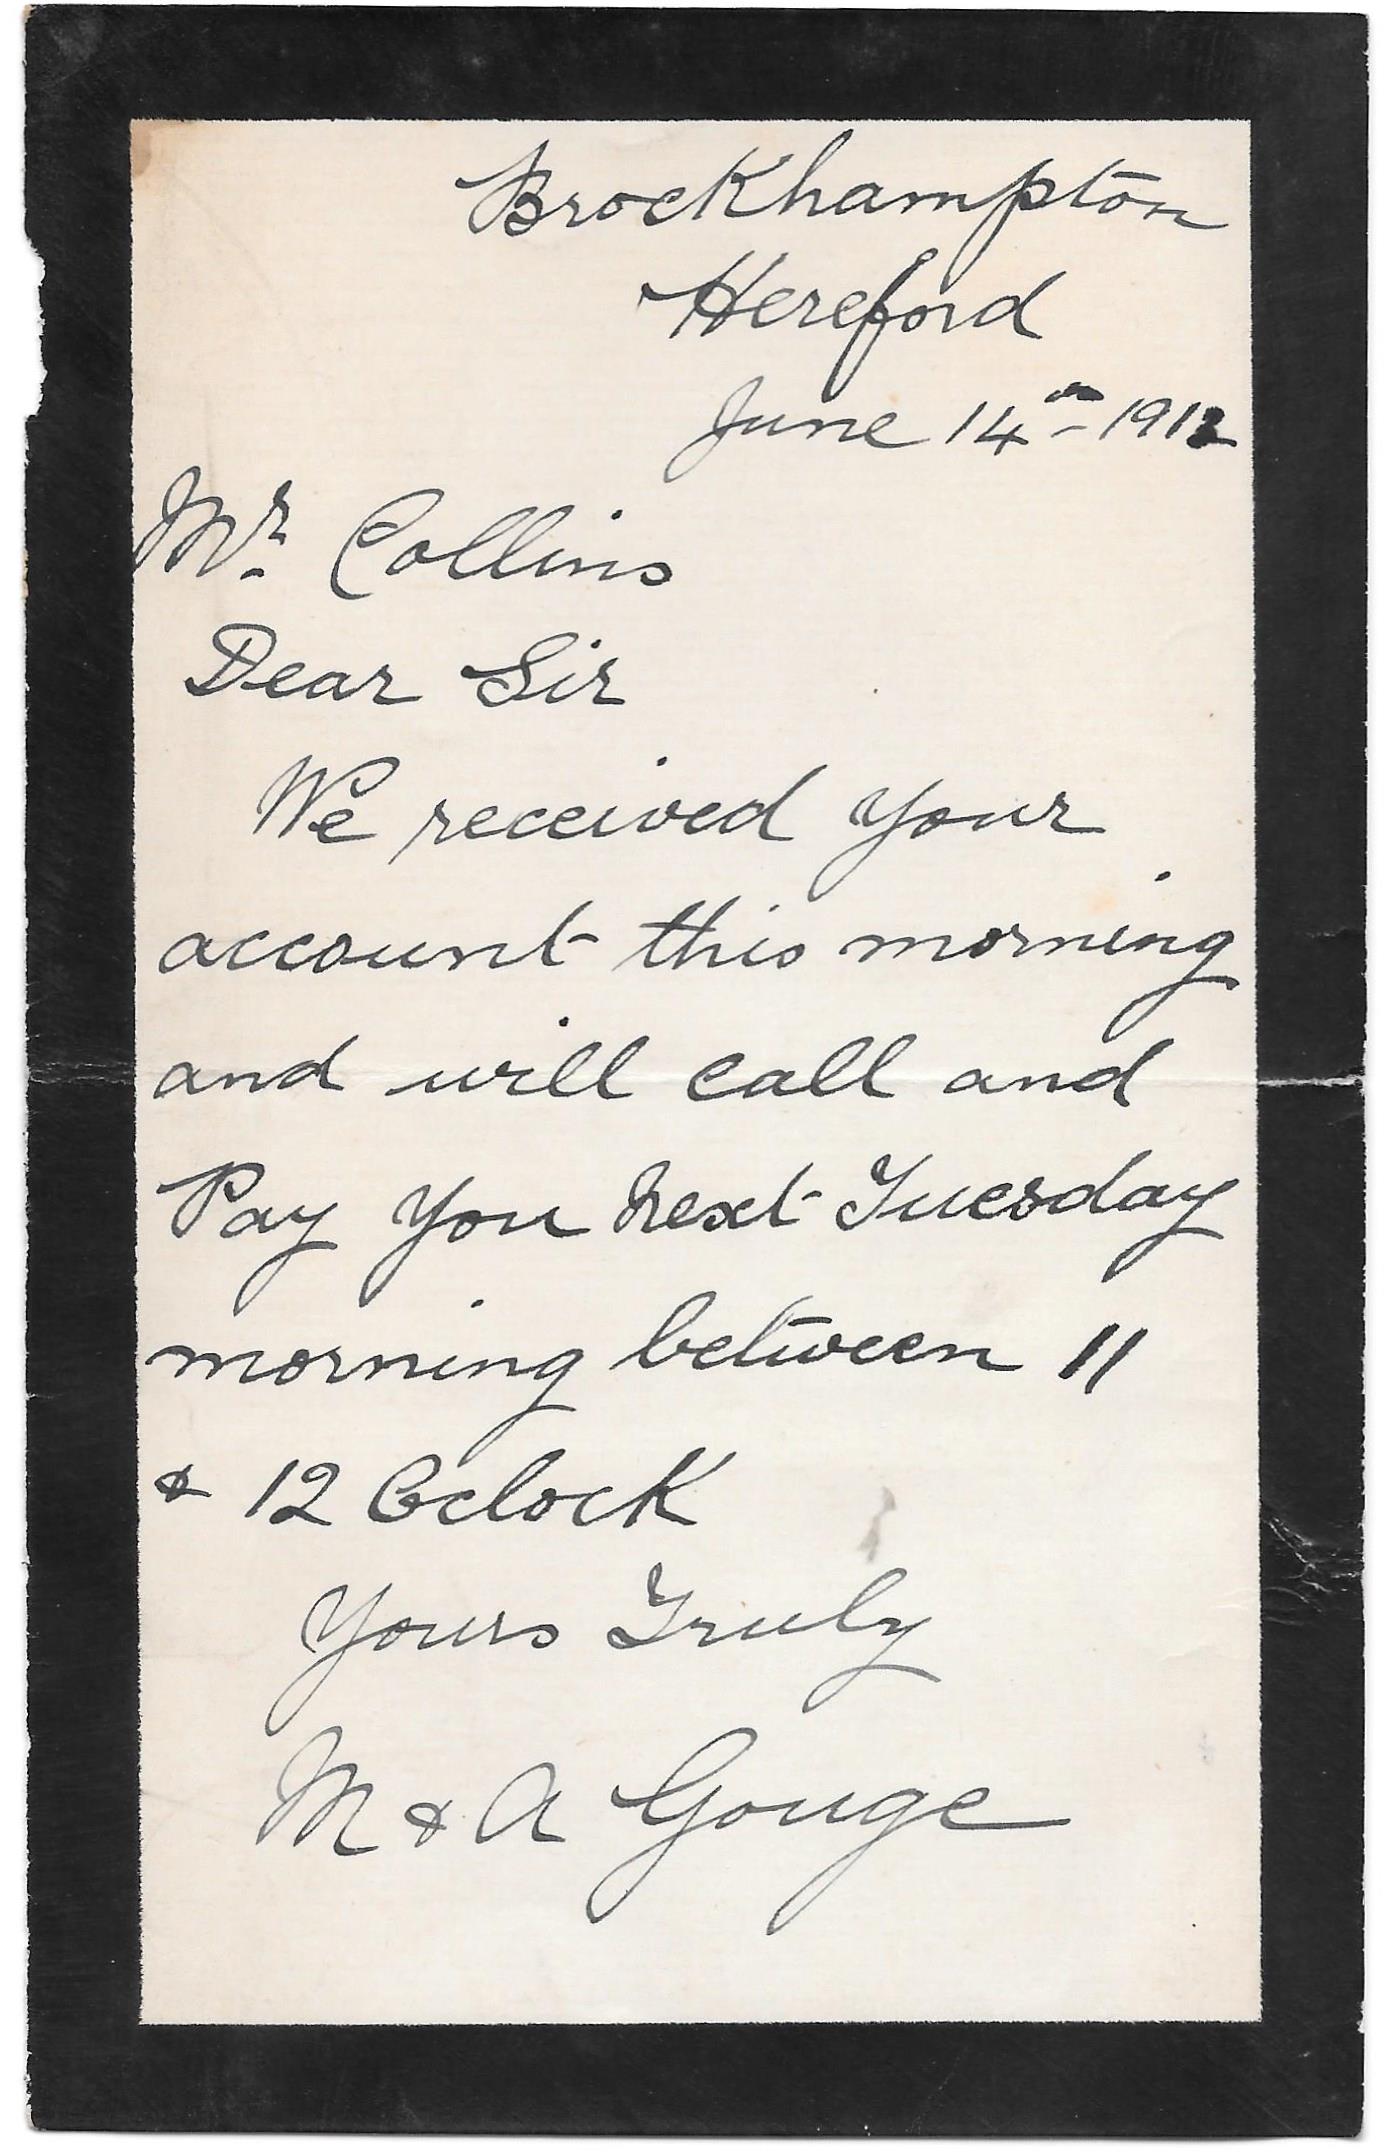 Brockhampton
Hereford
June 14th 1912
Mr. Collins
Dear Sir
We received your
account this morning
and will call and
Pay You next Tuesday
morning between 11
& 12 Oclock
Yours Truly
M & A Gouge